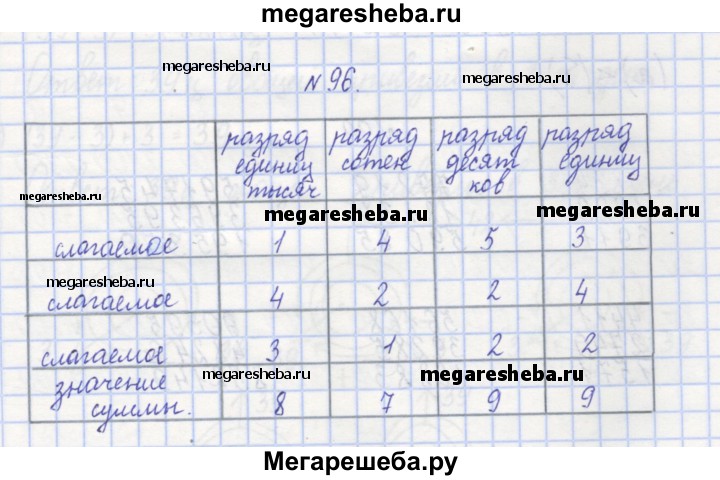 megaresheba.ru
megaresheba.ru
megaresheba.ru
№ 96.
разряд единиц тысяч
разряд сотен
разряд десят ков
разряд единиц
megaresheba.ru
megaresheba.ru
megaresheba.ru
слагаемое 1 4 5 3
megaresheba.ru
слагаемое 4 2 2 4
слагаемое 3 1 2 2
megaresheba.ru
megaresheba.ru
значение
суммы. 8 7 9 9
Мегарешеба.ру